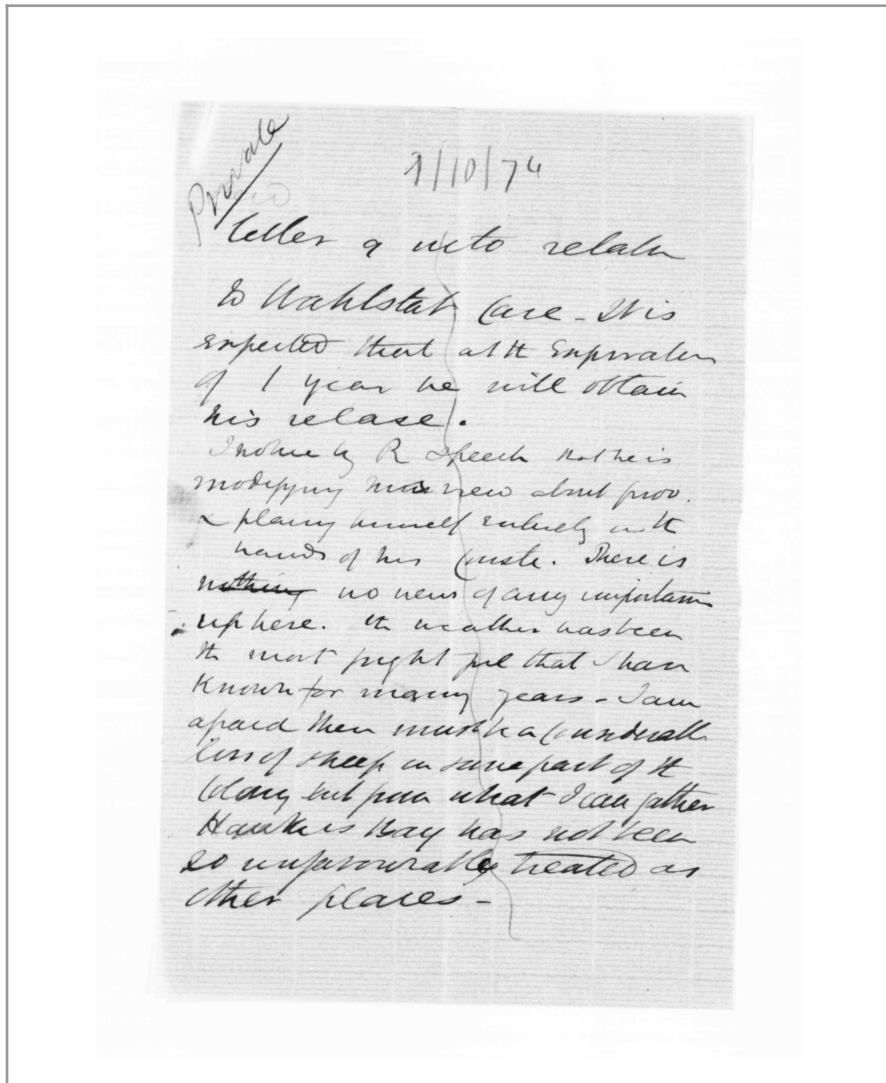 Private
1/10/74
letter & me to relation
to Wahlstab Case - It is
expected that at the Expiration
of 1 year he will obtain
his release.
I notice by R speech that he is
modifying his view about prov.
& placing himself entirely in the
hands of his Conste. There is
nothing no news of any importance
up here. the weather has been
the most frightful that I have
Known for many years - I am
afraid there must be a Considerable
loss of sheep in some part of the
Colony but from what I can gather
Hawkes Bay has not been
so unfavourably treated as
other places -